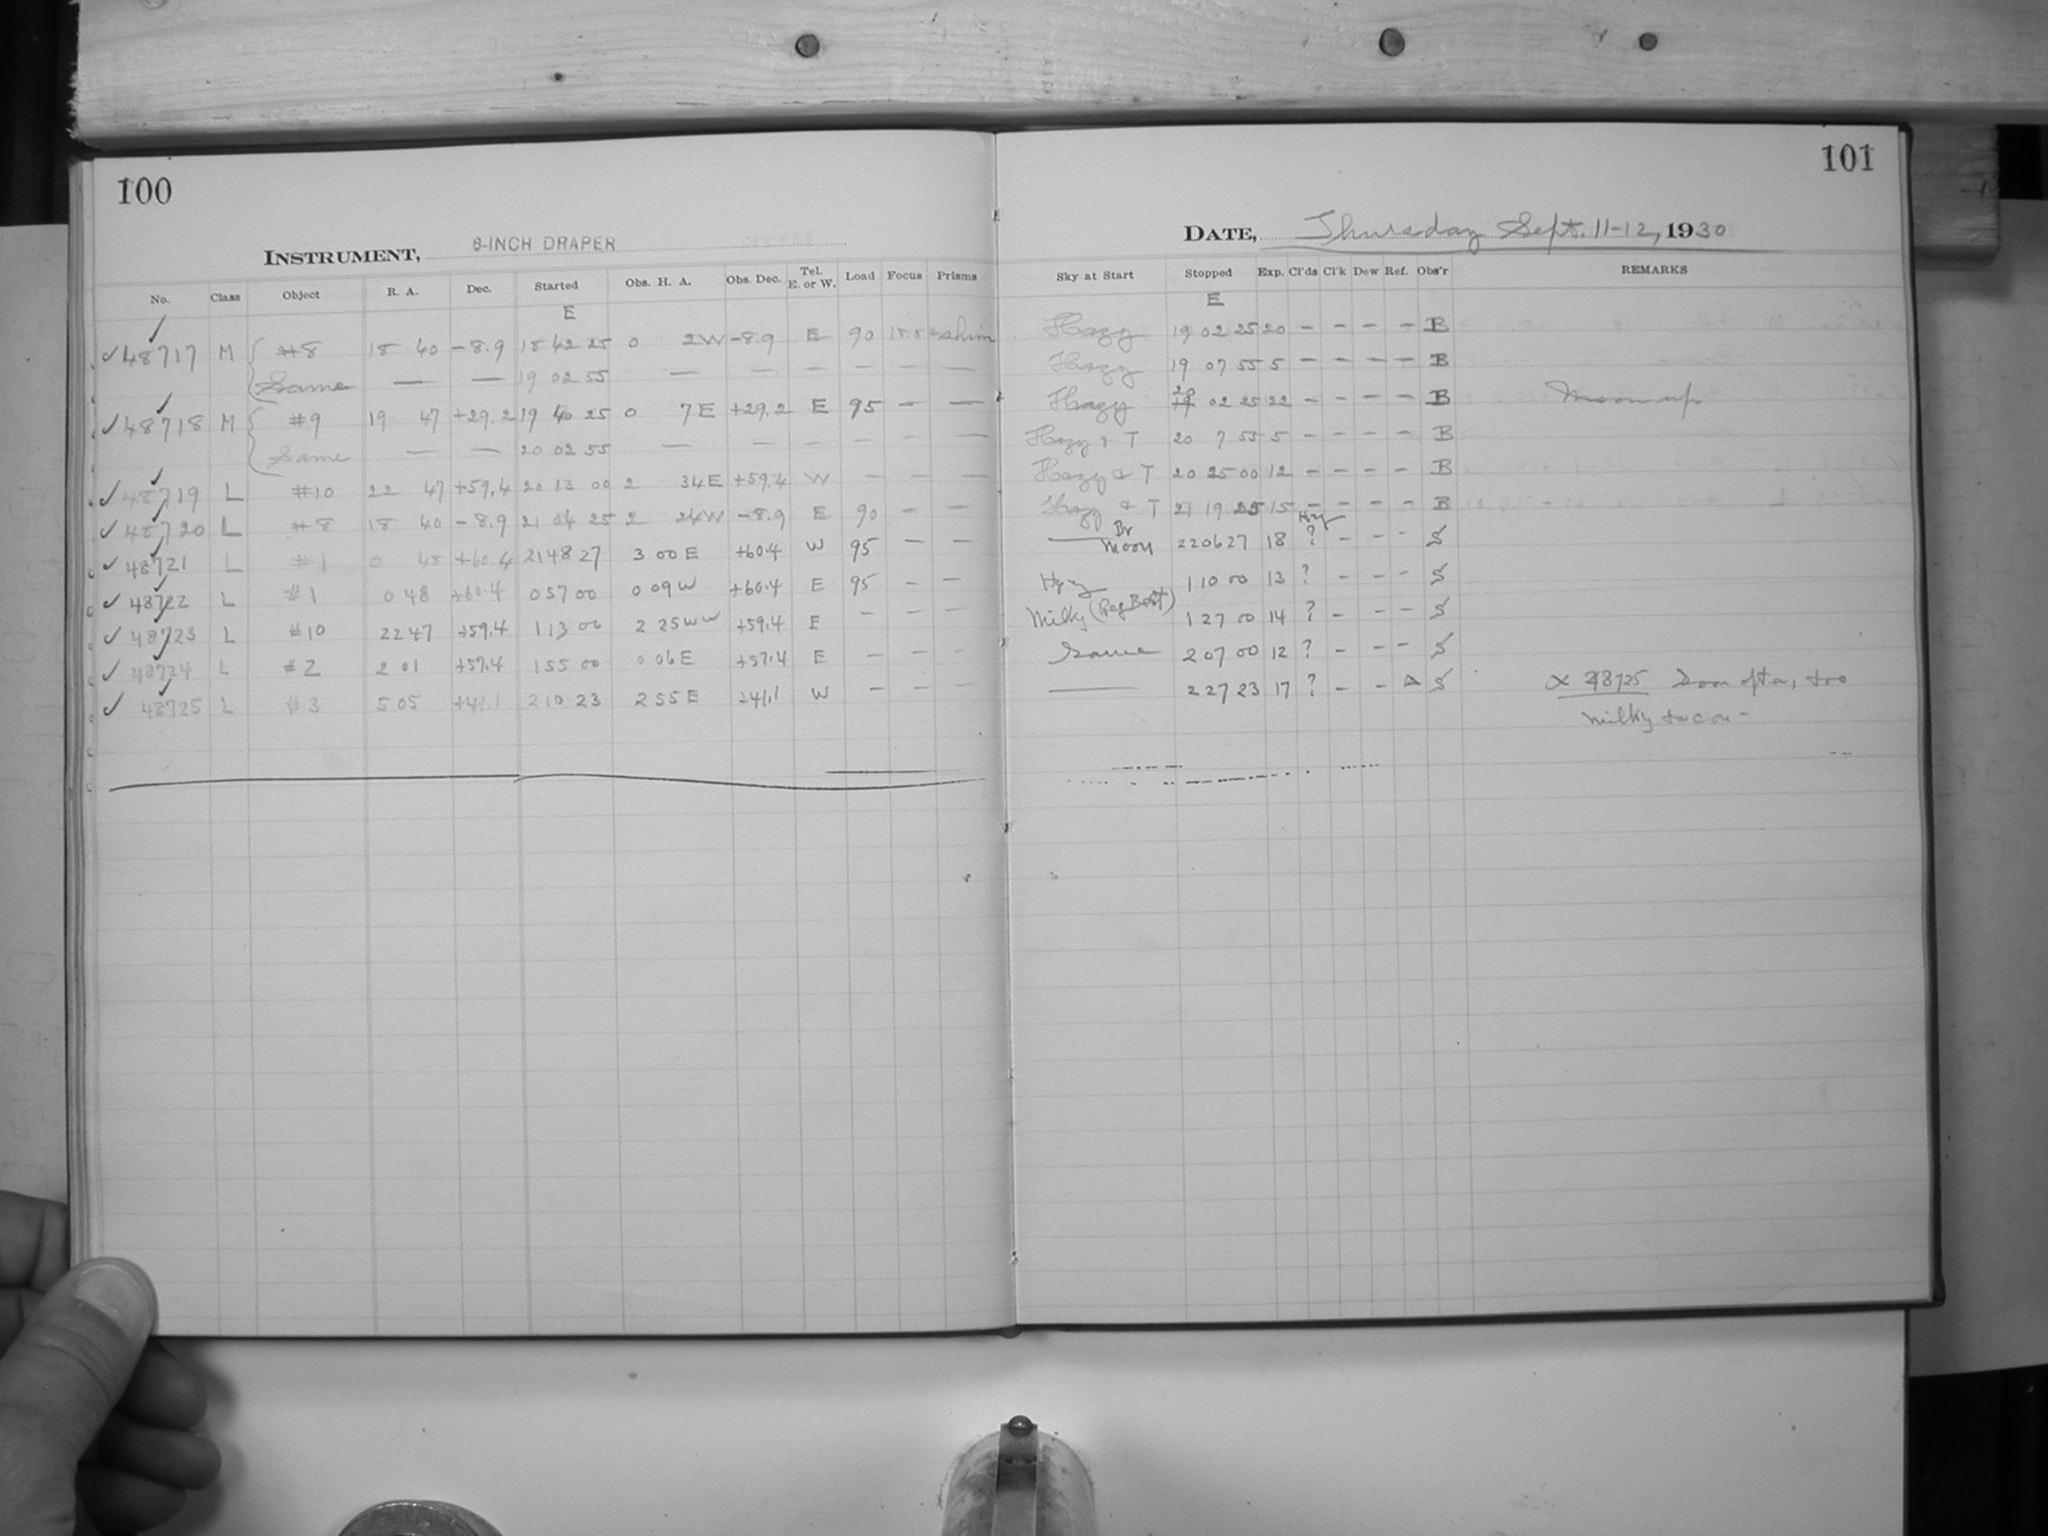 100
INSTRUMENT, 8-INCH DRAPER
No. Class Object R. A. Dec. Started Obs. H. A. Obs. Dec. Tel. E. or W. Load Focus Prisms
E
✓48717 M #8 18 40 -8.9 18 42 25 0 2W -8.9 E 90 shim
Same — — 19 02 55 — — — — — —
✓48718 M #9 19 47 +29.2 19 40 25 0 7E +29.2 E 95 — —
Same — — 20 02 55 — — — — — —
✓48719 L #10 22 47 +59.4 20 13 00 2 34E +59.4 W — — —
✓48720 L #8 18 40 -8.9 21 04 25 2 24W -8.9 E 90 — —
✓48721 L #1 0 48 +60.4 21 48 27 3 00 E +60.4 W 95 — —
✓48722 L #1 0 48 +60.4 0 57 00 0 09 W +60.4 E 95 — —
✓48723 L #10 22 47 +59.4 1 13 00 2 25 W +59.4 E — — —
✓48724 L #2 2 01 +57.4 1 55 00 0 06 E +57.4 E — — —
✓48725 L #3 5 05 +41.1 2 10 23 2 55 E +41.1 W — — —
101
DATE, Thursday Sept. 11-12, 1930
Sky at Start Stopped Exp. Cl'ds Cl'k Dew Ref. Obs'r REMARKS
E
Hazy 19 02 25 20 — — — — B
Hazy 19 07 55 5 — — — — B
Hazy 20 02 25 22 — — — — B Moon up
Hazy & T 20 7 55 5 — — — — B
Hazy & T 20 25 00 12 — — — — B
Hazy & T 21 19 25 15 — — — — B
Br Moon 22 06 27 18 Hzy ? — — — S
Hzy 1 10 00 13 ? — — — S
Milky 1 27 00 14 ? — — — S
Same 2 07 00 12 ? — — — S
— 2 27 23 17 ? — — S 48725 too
milky